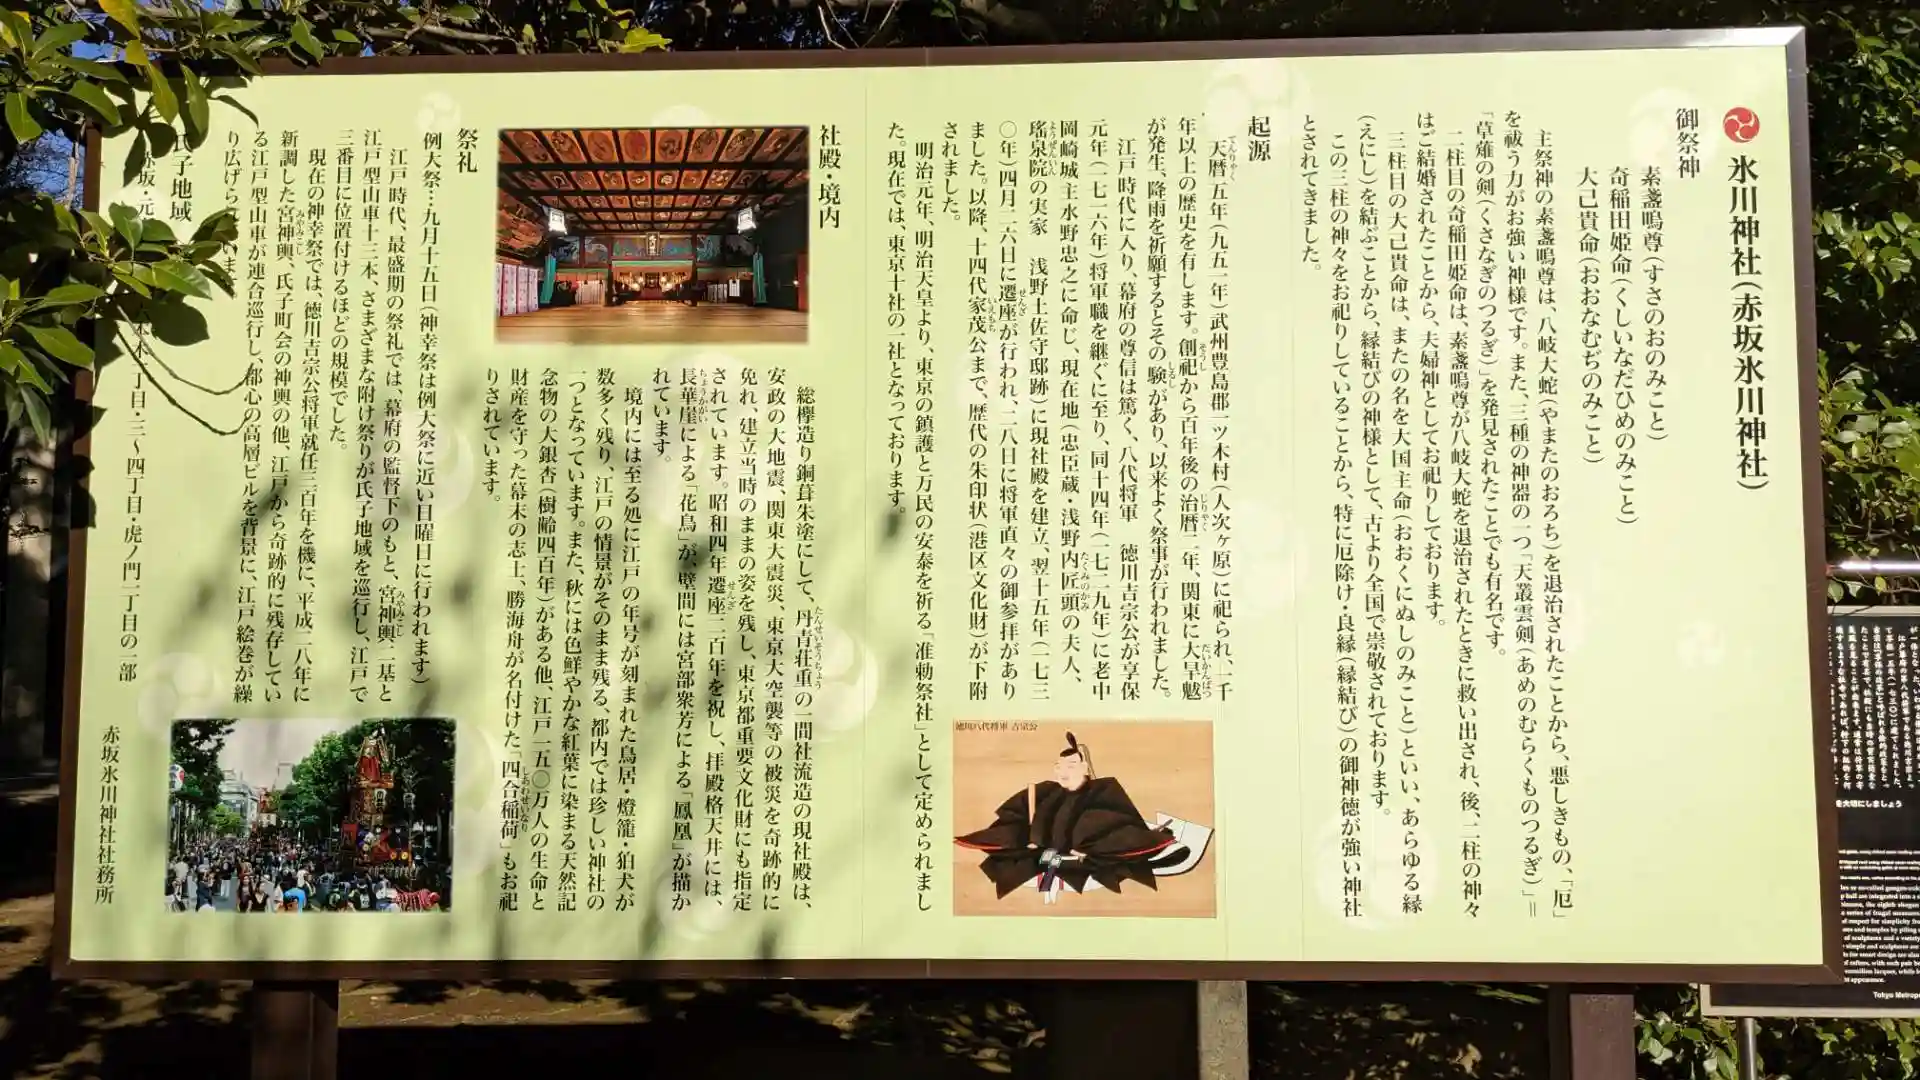 氷川神社（赤坂氷川神社）
御祭神
素盞嗚尊（すさのおのみこと）
奇稲田姫命（くしいなだひめのみこと）
大己貴命（おおなむぢのみこと）
主祭神の素盞嗚尊は、八岐大蛇（やまたのおろち）を退治されたことから、悪しきもの、「厄」
を祓う力がお強い神様です。また、三種の神器の一つ「天叢雲剣（あめのむらくものつるぎ）」＝
「草薙の剣（くさなぎのつるぎ）」を発見されたことでも有名です。
二柱目の奇稲田姫命は、素盞嗚尊が八岐大蛇を退治されたときに救い出され、後、二柱の神々
はご結婚されたことから、夫婦神としてお祀りしております。
三柱目の大己貴命は、またの名を大国主命（おおくにぬしのみこと）といい、あらゆる縁
（えにし）を結ぶことから、縁結びの神様として、古より全国で崇敬されております。
この三柱の神々をお祀りしていることから、特に厄除け・良縁（縁結び）の御神徳が強い神社
とされてきました。
起源
天暦五年（九五一年）武州豊島郡一ツ木村（人次ヶ原）に祀られ、一千
年以上の歴史を有します。創祀から百年後の治暦二年、関東に大旱魃
が発生、降雨を祈願するとその験があり、以来よく祭事が行われました。
江戸時代に入り、幕府の尊信は篤く、八代将軍　徳川吉宗公が享保
元年（一七一六年）将軍職を継ぐに至り、同十四年（一七二九年）に老中
岡崎城主水野忠之に命じ、現在地（忠臣蔵・浅野内匠頭の夫人、
瑤泉院の実家　浅野土佐守邸跡）に現社殿を建立、翌十五年（一七三
〇年）四月二六日に遷座が行われ、二八日に将軍直々の御参拝があり
ました。以降、十四代家茂公まで、歴代の朱印状（港区文化財）が下附
されました。
明治元年、明治天皇より、東京の鎮護と万民の安泰を祈る「准勅祭社」として定められまし
た。現在では、東京十社の一社となっております。
徳川八代将軍 吉宗公
社殿・境内
総欅造り銅葺朱塗にして、丹青荘重の一間社流造の現社殿は、
安政の大地震、関東大震災、東京大空襲等の被災を奇跡的に
免れ、建立当時のままの姿を残し、東京都重要文化財にも指定
されています。昭和四年遷座二百年を祝し、拝殿格天井には、
長華崖による「花鳥」が、壁間には宮部衆芳による「鳳凰」が描か
れています。
境内には至る処に江戸の年号が刻まれた鳥居・燈籠・狛犬が
数多く残り、江戸の情景がそのまま残る、都内では珍しい神社の
一つとなっています。また、秋には色鮮やかな紅葉に染まる天然記
念物の大銀杏（樹齢四百年）がある他、江戸一五〇万人の生命と
財産を守った幕末の志士、勝海舟が名付けた「四合稲荷」もお祀
りされています。
祭礼
例大祭…九月十五日（神幸祭は例大祭に近い日曜日に行われます）
江戸時代、最盛期の祭礼では、幕府の監督下のもと、宮神輿二基と
江戸型山車十三本、さまざまな附け祭りが氏子地域を巡行し、江戸で
三番目に位置付けるほどの規模でした。
現在の神幸祭では、徳川吉宗公将軍就任三百年を機に、平成二八年に
新調した宮神輿、氏子町会の神輿の他、江戸から奇跡的に残存してい
る江戸型山車が連合巡行し、都心の高層ビルを背景に、江戸絵巻が繰
り広げられています。
氏子地域
赤坂・元 丁目・三〜四丁目・虎ノ門一丁目の一部
赤坂氷川神社社務所
を大切にしましょう
Tokyo Metropo